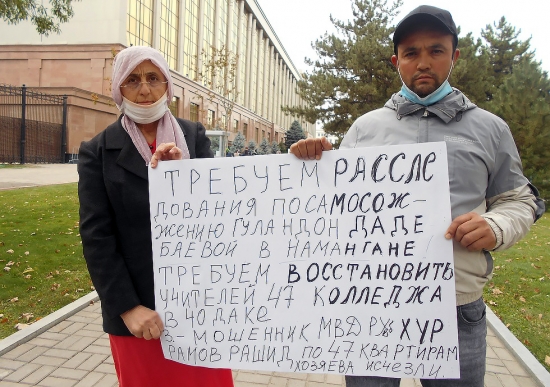 ТРЕБУЕМ РАССЛЕ
ДОВАНИЯ ПО САМОСОЖ-
ЖЕНИЮ ГУЛАНДОН ДАДЕ
БАЕВОЙ В НАМАНГАНЕ
ТРЕБУЕМ ВОССТАНОВИТЬ
УЧИТЕЛЕЙ 47 КОЛЛЕДЖА
В 40 ДАКЕ
З.- МОШЕННИК МВД РУз ХУР
РАМОВ РАШИД ПО 47 КВАРТИРАМ
ХОЗЯЕВА ИСЧЕЗЛИ.